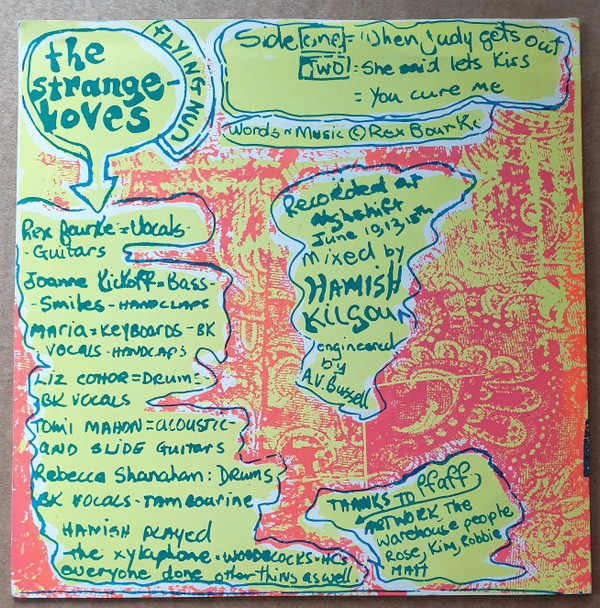 the
strange-
Loves
FLYING NUN
Side [one] = When judy gets out
[TWO] = She said lets kiss
= You cure me
Words n Music © Rex Bourke
Rex Bourke = Vocals -
Guitars
Joanne Kickoff = Bass -
- Smiles - HANDCLAPS
MARIA = KEYBOARDS - BK
VOCALS - HANDCLAPS
LIZ COHOR = DRUMS -
BK VOCALS
TOMI MAHON = ACOUSTIC -
AND SLIDE GUITARS
Rebecca Shanahan: DRUMS
BK VOCALS - TAMBOURINE
HAMISH PLAYED
the xylaphone - WOODBLOCKS - HCs
everyone done other things as well.
Recorded at
Nightshift
June
Mixed by
HAMISH
Kilgour
engineered
by
A.V. Bussell
THANKS TO Pfaff
ARTWORK The
warehouse people
Rose, Kim, Robbie
MATT